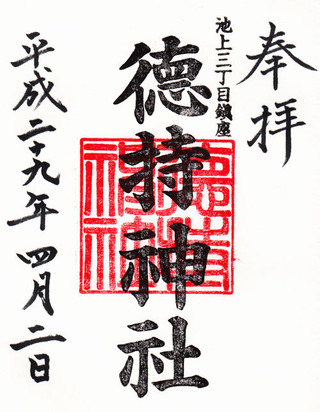 奉拝
池上三丁目鎮座
徳持神社
徳持神社
平成二十九年四月二日